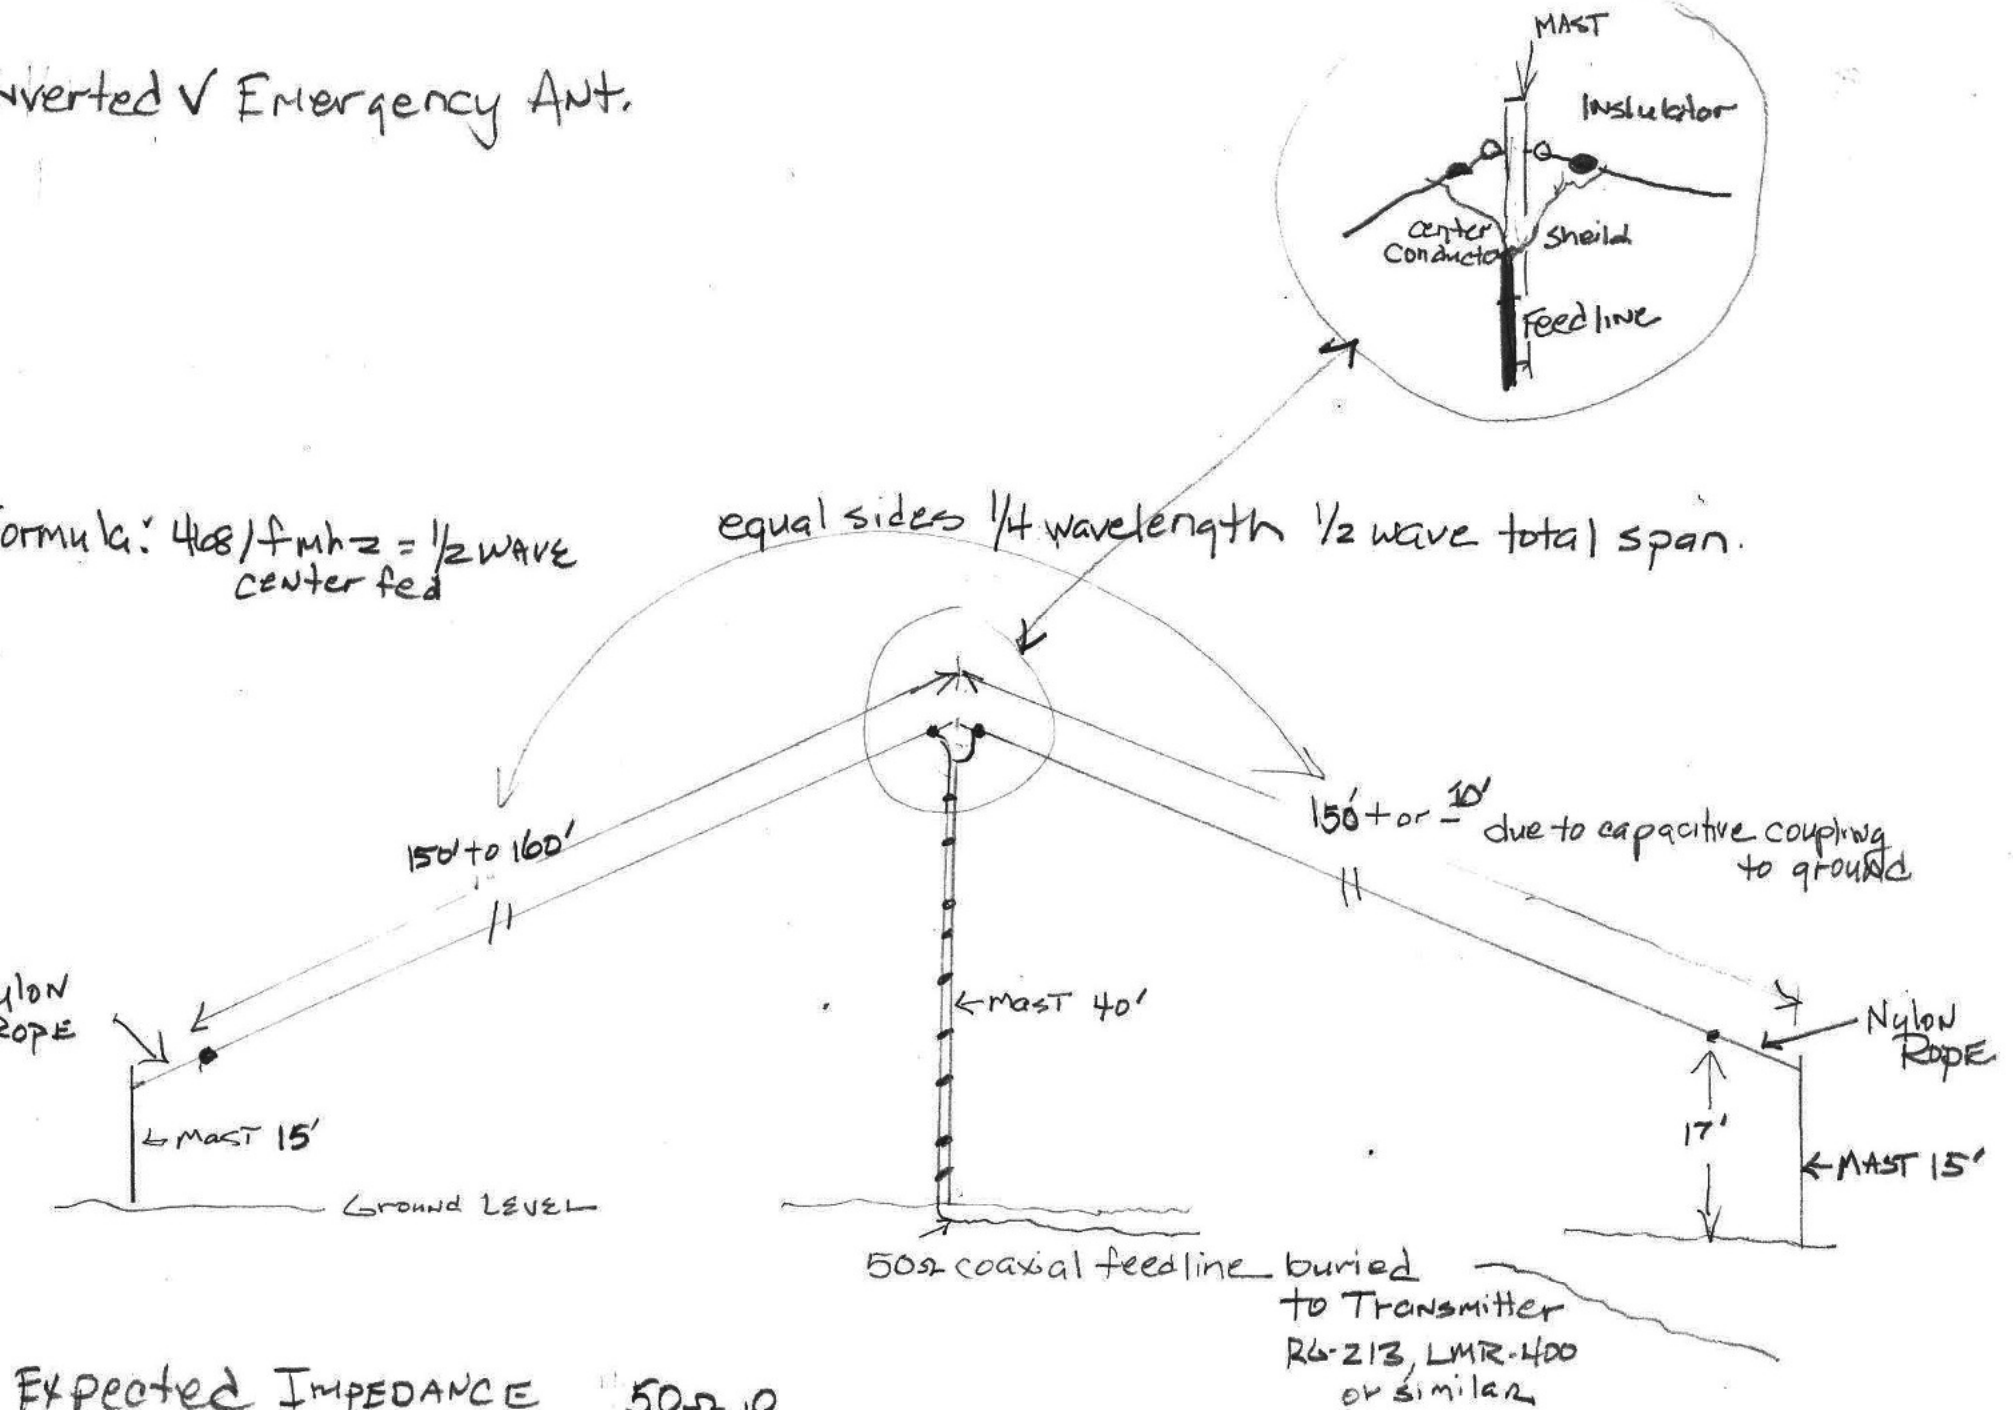 nverted V Emergency Ant.
MAST
Inslubtor
center
Conductor
Sheild
Feedline
ormula: 468/fmhz = 1/2 WAVE
center fed
equal sides 1/4 wavelength 1/2 wave total span.
150' to 160'
150' + or - 10'
due to capacitive coupling
to ground
ylon
ROPE
Mast 40'
Nylon
ROPE
Mast 15'
17'
MAST 15'
Ground LEVEL
50Ω coaxial feedline buried
to Transmitter
RG-213, LMR-400
or similar
Expected IMPEDANCE 50Ω